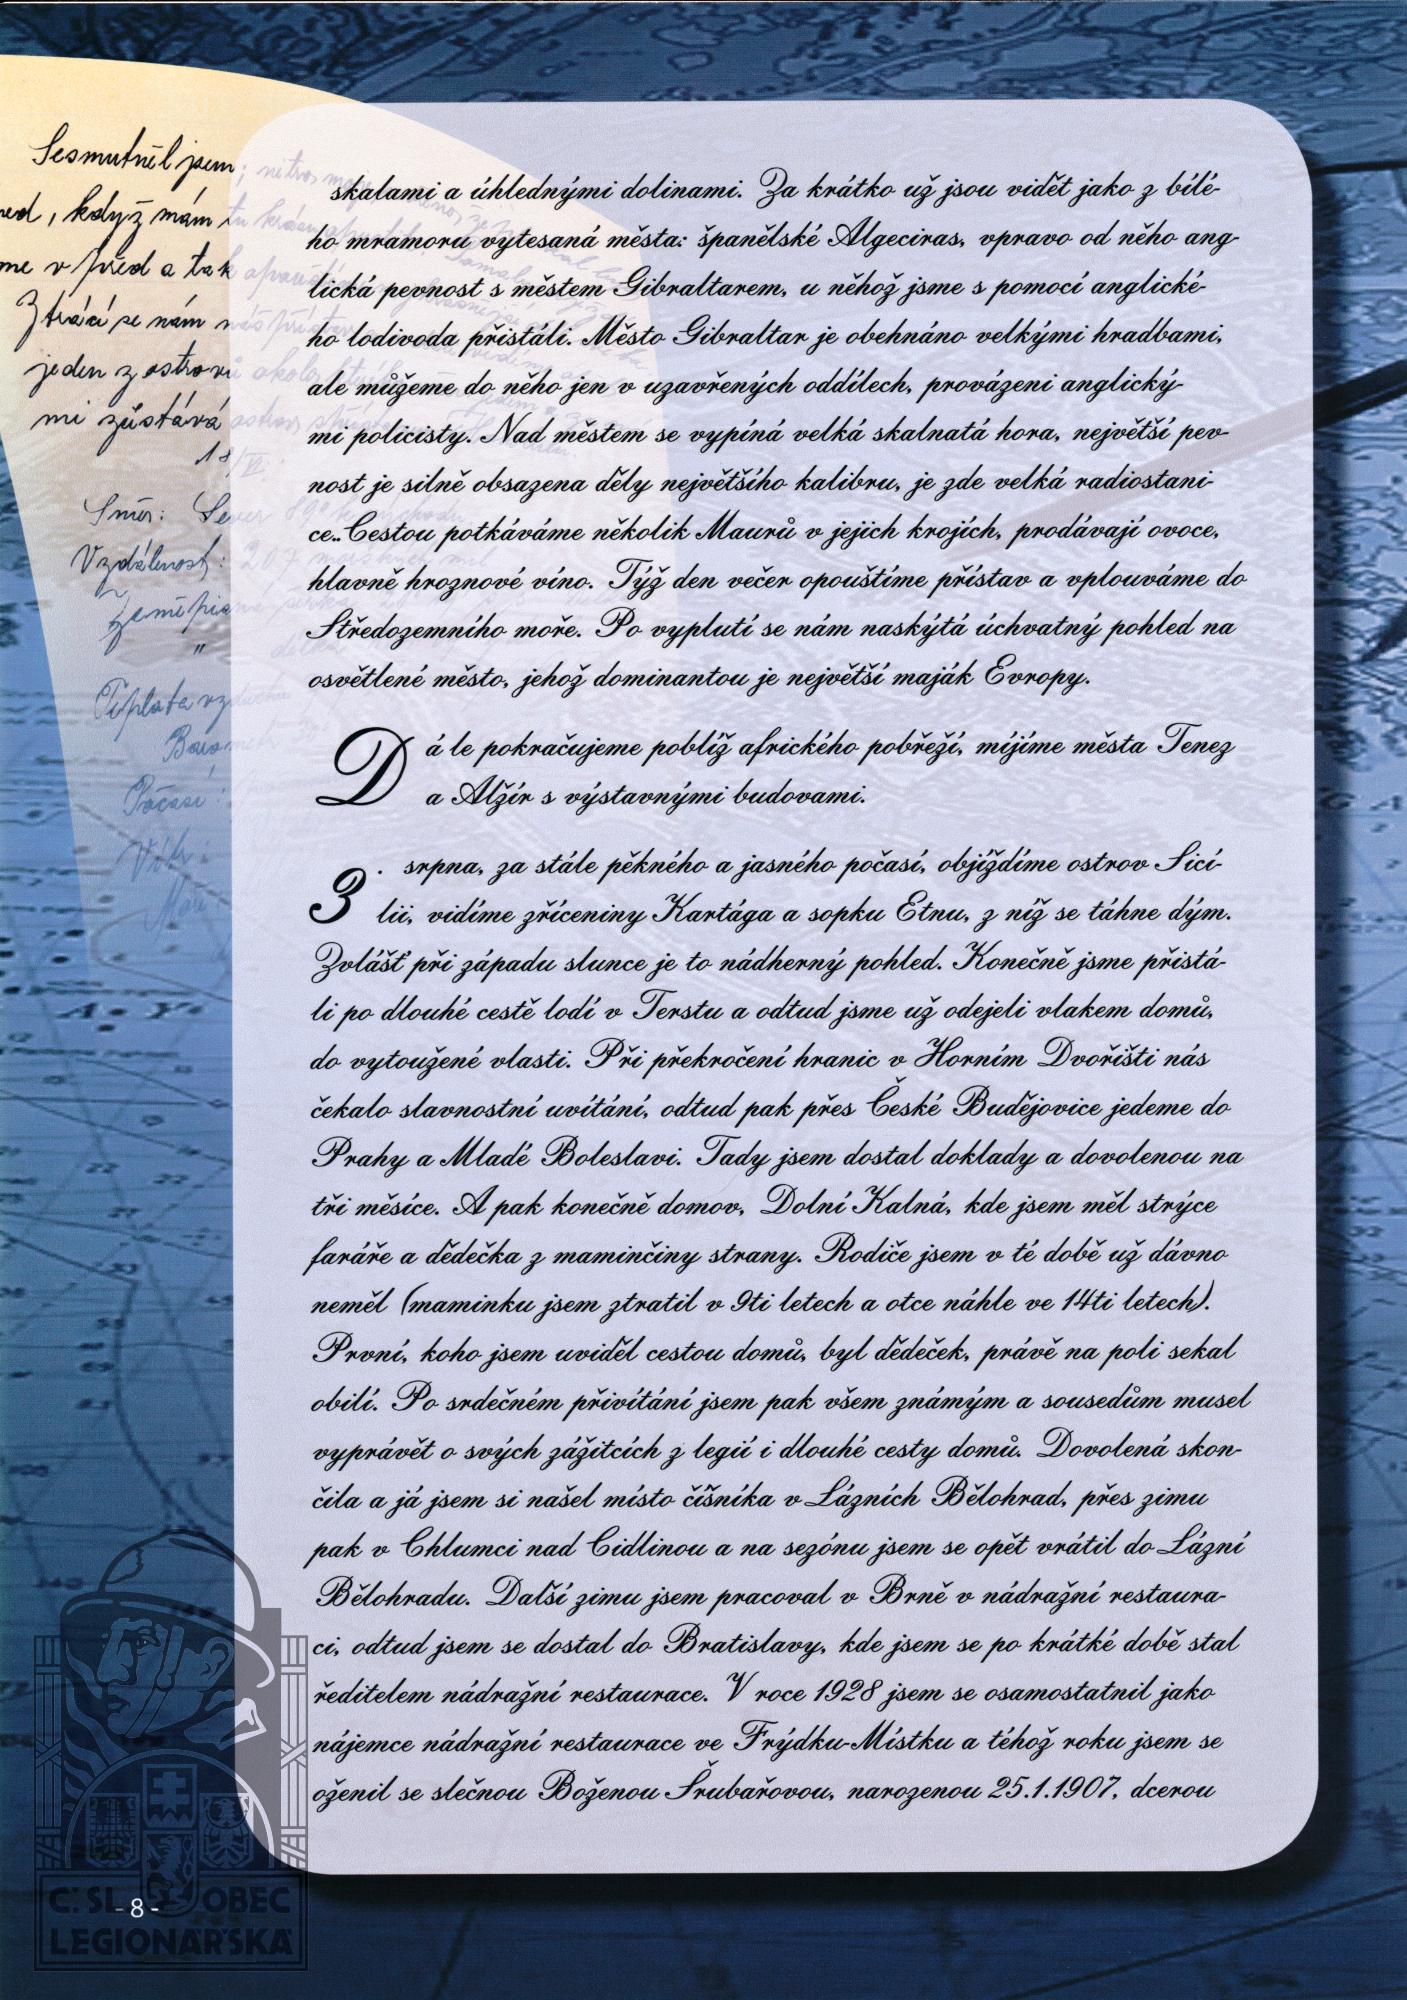 Sesmutněl jsem
když mám
me v před a tak
Ztrácí se nám
jeden z ostrovů
mi zůstává
18/VI.
Směr: Sever
Vzdálenost: 207
Teplota
Počasí:
skalami a úhlednými dolinami. Za krátko už jsou vidět jako z bílé-
ho mramoru vytesaná města: španělské Algeciras, vpravo od něho ang-
lická pevnost s městem Gibraltarem, u něhož jsme s pomocí anglické-
ho lodivoda přistáli. Město Gibraltar je obehnáno velkými hradbami,
ale můžeme do něho jen v uzavřených oddílech, provázeni anglický-
mi policisty. Nad městem se vypíná velká skalnatá hora, největší pev-
nost je silně obsazena děly největšího kalibru, je zde velká radiostani-
ce.. Cestou potkáváme několik Maurů v jejich krojích, prodávají ovoce,
hlavně hroznové víno. Týž den večer opouštíme přístav a vplouváme do
Středozemního moře. Po vyplutí se nám naskýtá úchvatný pohled na
osvětlené město, jehož dominantou je největší maják Evropy.
Dá le pokračujeme poblíž afrického pobřeží, míjíme města Tenez
a Alžír s výstavnými budovami.
3. srpna, za stále pěkného a jasného počasí, objíždíme ostrov Sicí-
lii, vidíme zříceniny Kartága a sopku Etnu, z níž se táhne dým.
Zvlášť při západu slunce je to nádherný pohled. Konečně jsme přistá-
li po dlouhé cestě lodí v Terstu a odtud jsme už odejeli vlakem domů,
do vytoužené vlasti. Při překročení hranic v Horním Dvořišti nás
čekalo slavnostní uvítání, odtud pak přes České Budějovice jedeme do
Prahy a Mladé Boleslavi. Tady jsem dostal doklady a dovolenou na
tři měsíce. A pak konečně domov, Dolní Kalná, kde jsem měl strýce
faráře a dědečka z maminčiny strany. Rodiče jsem v té době už dávno
neměl (maminku jsem ztratil v 9ti letech a otce náhle ve 14ti letech).
První, koho jsem uviděl cestou domů, byl dědeček, právě na poli sekal
obilí. Po srdečném přivítání jsem pak všem známým a sousedům musel
vyprávět o svých zážitcích z legií i dlouhé cesty domů. Dovolená skon-
čila a já jsem si našel místo číšníka v Lázních Bělohrad, přes zimu
pak v Chlumci nad Cidlinou a na sezónu jsem se opět vrátil do Lázní
Bělohradu. Další zimu jsem pracoval v Brně v nádražní restaura-
ci, odtud jsem se dostal do Bratislavy, kde jsem se po krátké době stal
ředitelem nádražní restaurace. V roce 1928 jsem se osamostatnil jako
nájemce nádražní restaurace ve Frýdku-Místku a téhož roku jsem se
oženil se slečnou Boženou Šrubařovou, narozenou 25.1.1907, dcerou
- 8 -
Č. SL. OBEC
LEGIONÁŘSKÁ